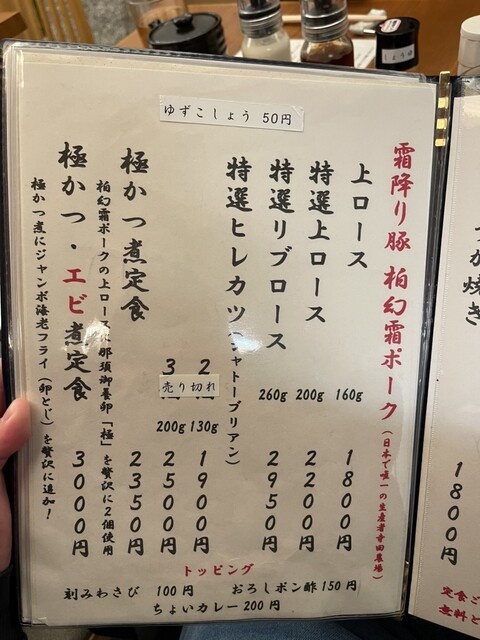 霜降り豚 柏幻霜ポーク(日本で唯一の生産者寺田農場)
上ロース 160g 1800円
特選上ロース 200g 2200円
特選リブロース 260g 2950円
特選ヒレカツ(シャトーブリアン)
130g 1900円
200g 2500円
売り切れ
極かつ煮定食 2350円
柏幻霜ポークの上ロースに那須御養卵「極」を贅沢に2個使用
極かつ・エビ煮定食 3000円
極かつ煮にジャンボ海老フライ(卵とじ)を贅沢に追加!
ゆずこしょう 50円
トッピング
刻みわさび 100円 おろしポン酢 150円
ちょいカレー 200円
1800円